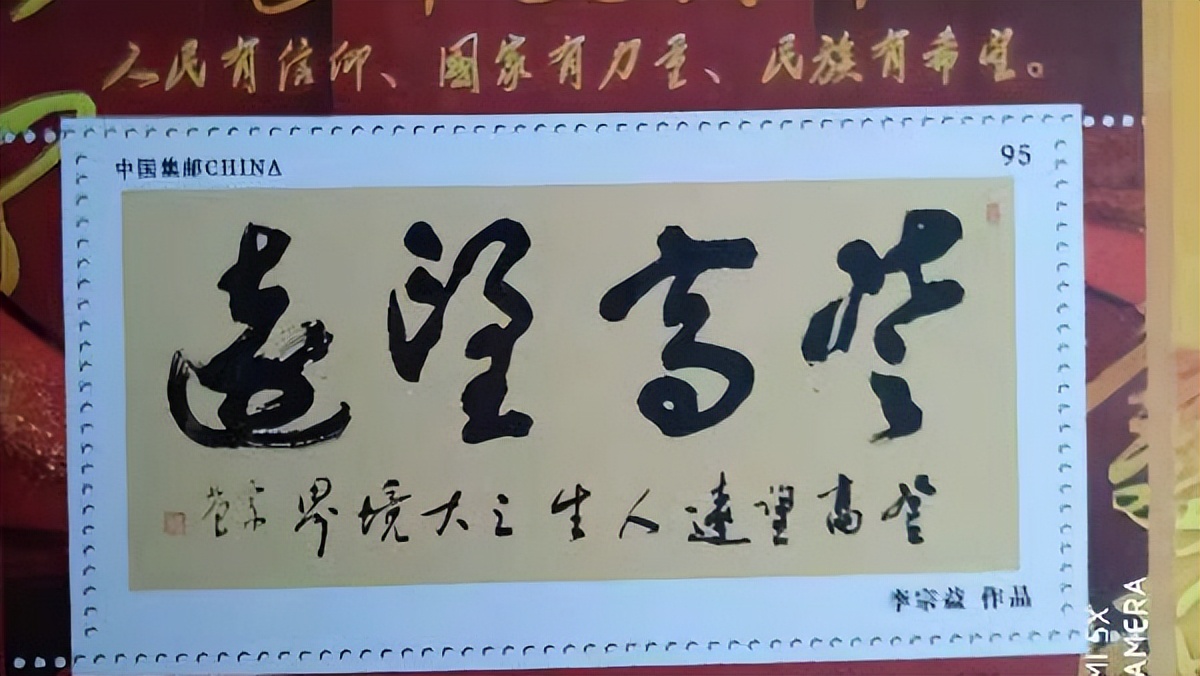 人民有信仰、國家有力量、民族有希望。
中国集邮CHINA
95
登高望遠
登高望遠人生之大境界
作品
MI 5X
AMERA